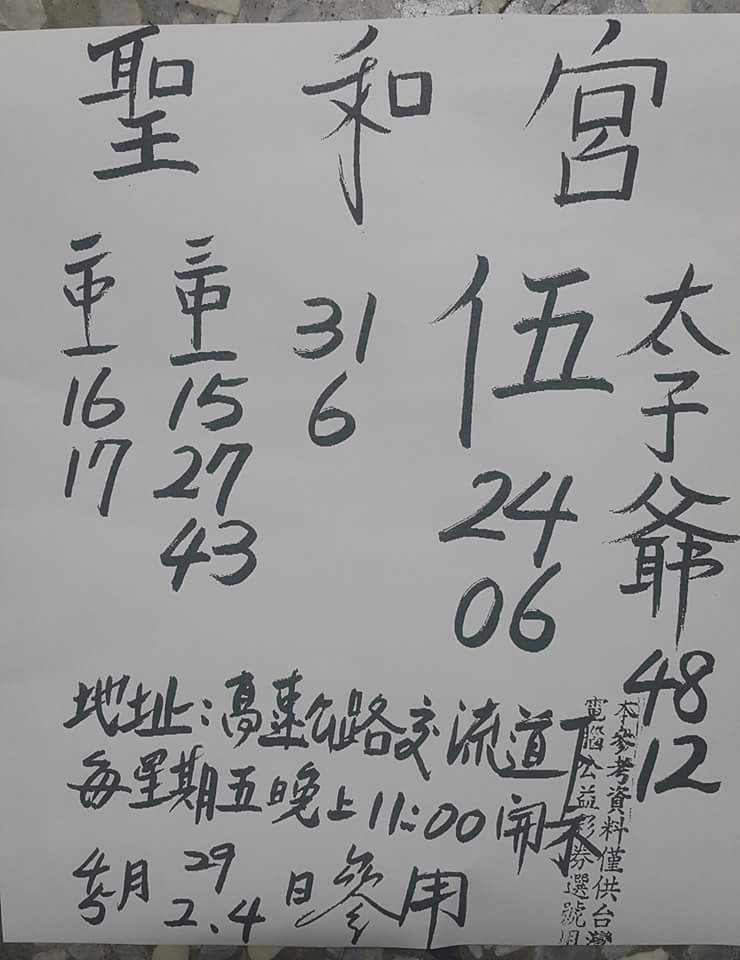 聖和宮
二中一
16
17
三中一
15
27
43
31
6
伍
24
06
太子爺
48
12
地址:高速公路交流道下
每星期五晚上11:00開
4 月 29 日參用
5 2.4
本參考資料僅供台灣
電腦公益彩券選號用